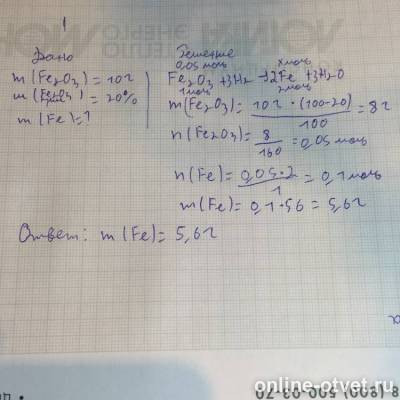 1
Дано
m(Fe2O3) = 10г
m(Fe2O3) = 20%
m(Fe)=?
Решение
0,05 моль х моль
Fe2O3 + 3H2 → 2Fe + 3H2O
1 моль 2 моль
m(Fe2O3) = 10г · (100-20) / 100 = 8г
n(Fe2O3) = 8 / 160 = 0,05 моль
n(Fe) = 0,05·2 / 1 = 0,1 моль
m(Fe) = 0,1·56 = 5,6г
Ответ: m(Fe) = 5,6г
8 (800) 500-03-70
online-otvet.ru